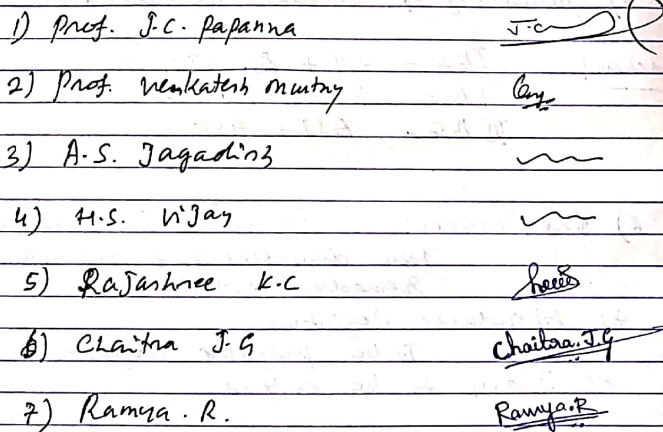 1) Prof. J.C. Papanna J.C
2) Prof. Venkatesh Murthy
3) A.S. Jagadish
4) H.S. Vijay
5) Rajashree K.C
6) Chaitra J.G Chaitraa.J.G
7) Ramya.R. Ramya.R